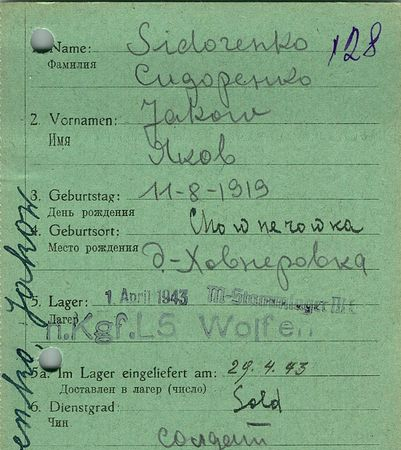 1. Name: Sidorenko 128
Фамилия Сидоренко
2. Vornamen: Jakow
Имя Яков
3. Geburtstag: 11-8-1919
День рождения
4. Geburtsort:
Место рождения д-Ховнеровка
5. Lager: 1. April 1943
Лагер
n.Kgf.L5 Wolfen
5a. Im Lager eingeliefert am: 29.4.43
Доставлен в лагер (число)
6. Dienstgrad: Sold
Чин солдат
enko, Jakow